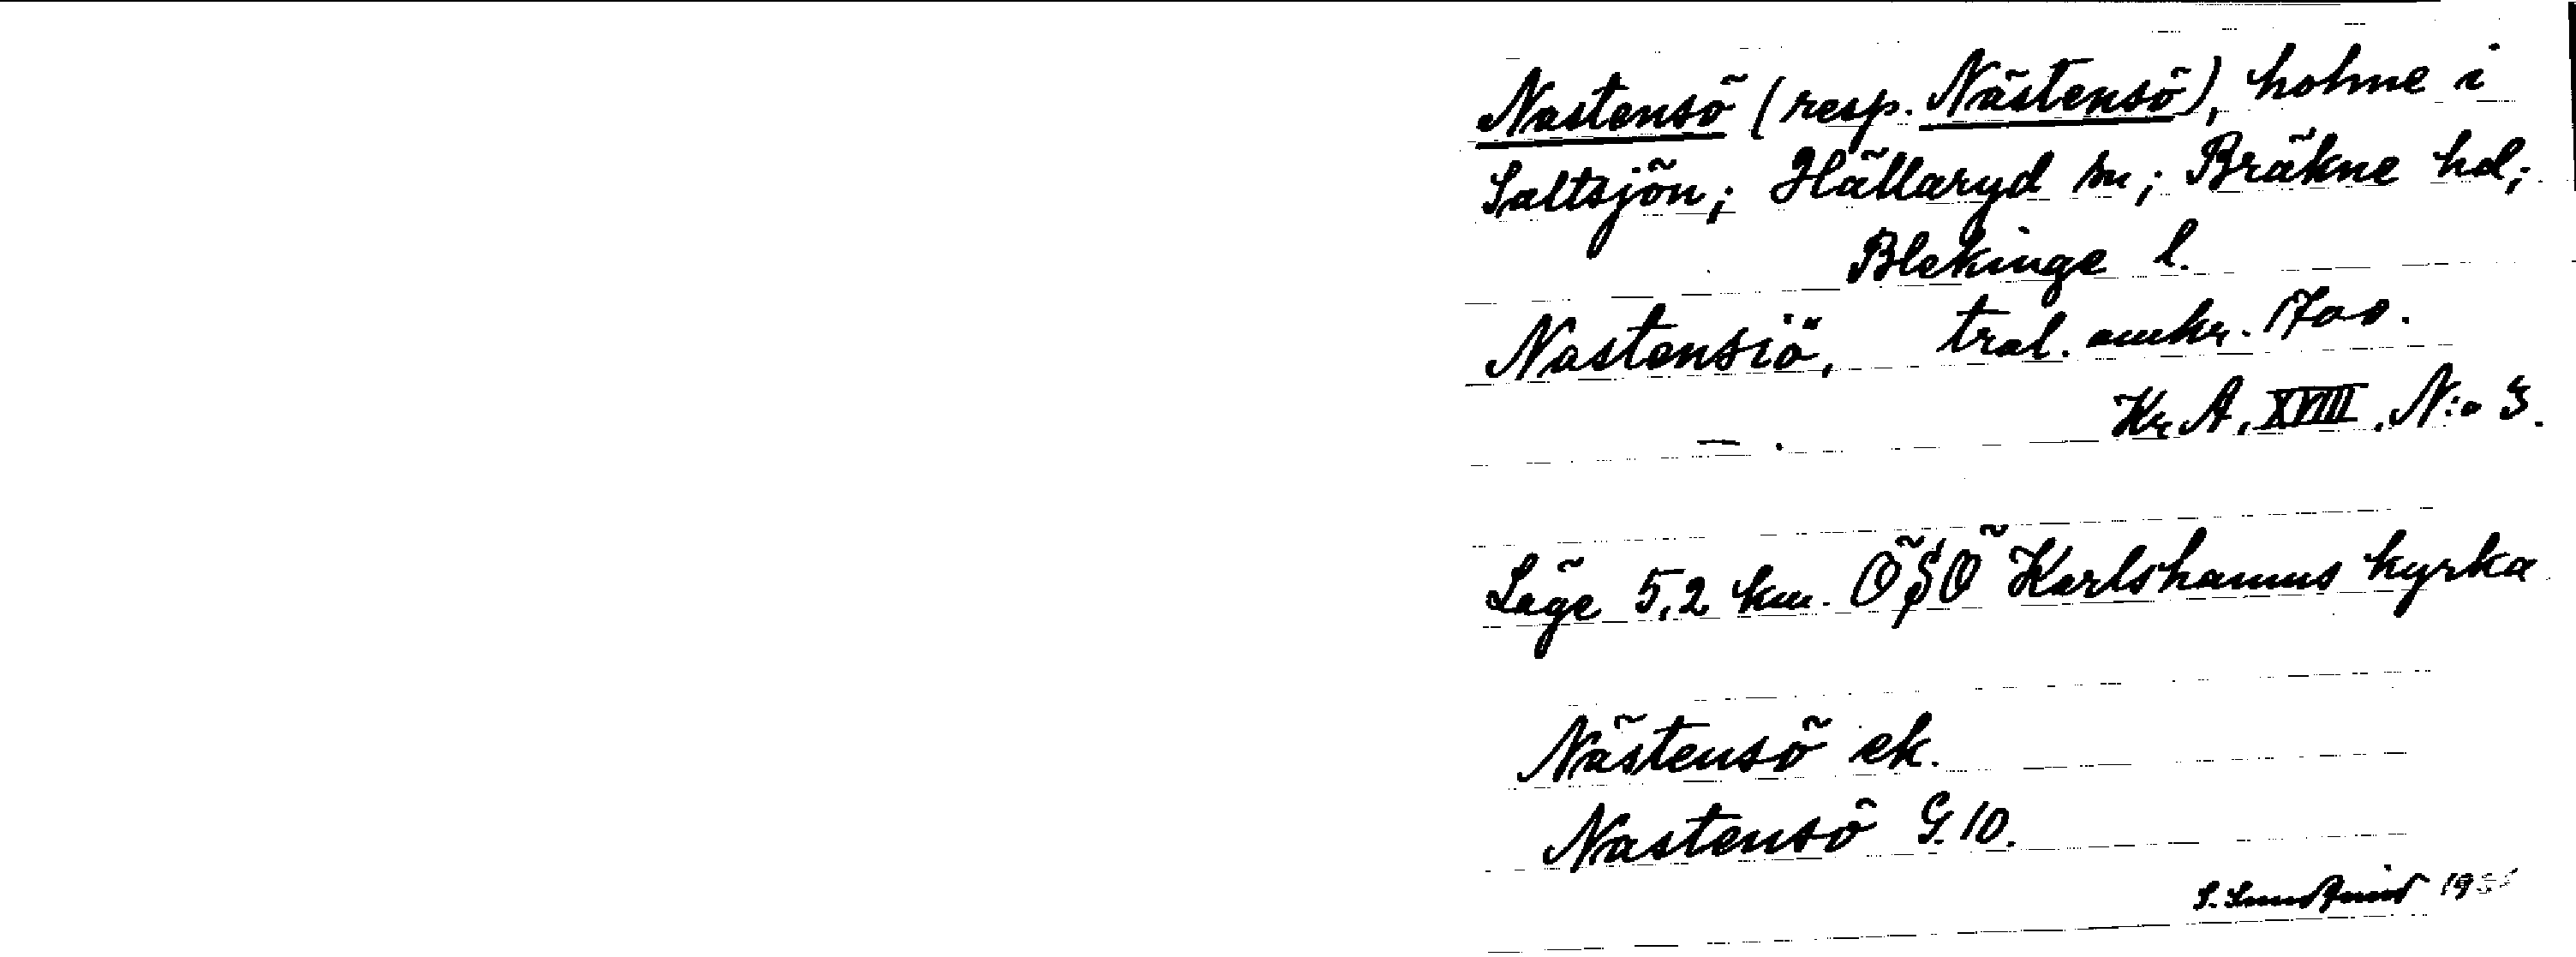 Nastensö (resp. Nästensö), holme i
Saltsjön; Hällaryd sn; Bräkne hd;
Blekinge l.
Nastensiö, tral. omkr. 1700.
Kr. A. XVIII. N:o 3.
Läge 5,2 km. ÖSÖ Karlshamns kyrka
Nästensö ek.
Nastensö G. 10.